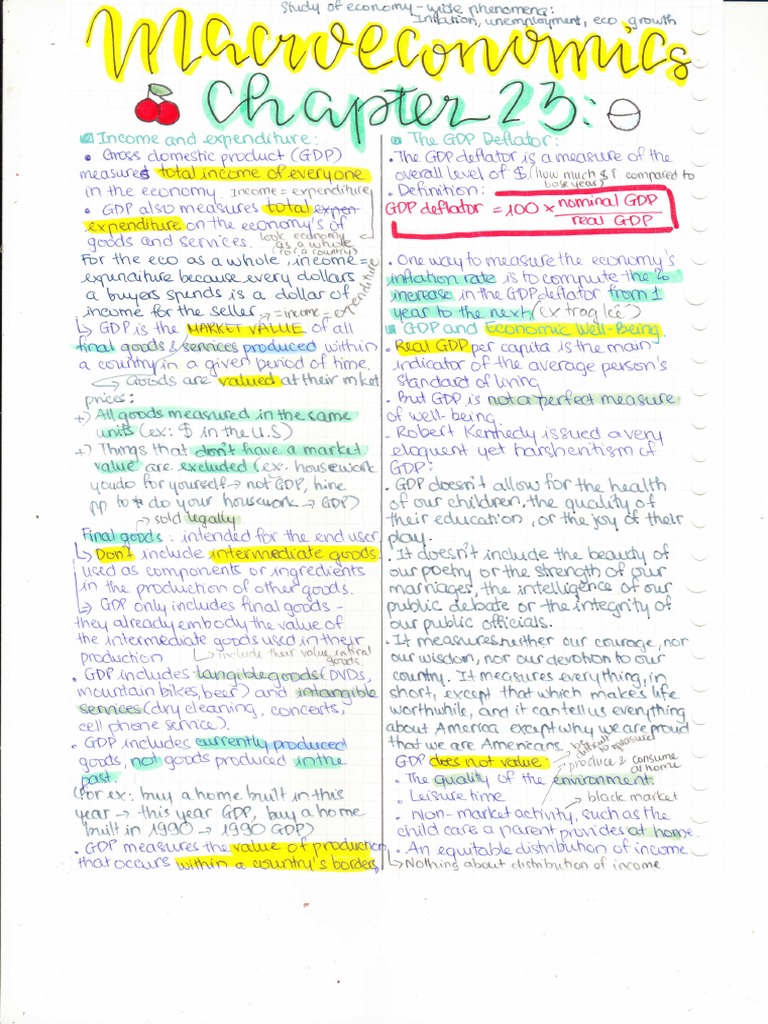 Study of economy-wide phenomena:
Inflation, unemployment, eco growth
Macroeconomics
Chapter 23:
Income and expenditure:
• Gross domestic product (GDP)
measures total income of everyone
in the economy. Income = expenditure
• GDP also measures total expen
expenditure on the economy's of
goods and services. look economy
as a whole
(for a country)
For the eco as a whole, income =
expenditure because every dollars
a buyers spends is a dollar of
income for the seller. → = income = expenditure
↳ GDP is the MARKET VALUE of all
final goods & services produced within
a country in a given period of time.
↪ Goods are valued at their mrket
prices:
+) All goods measured in the same
units (ex: $ in the U.S)
+) Things that don't have a market
value are excluded (ex: housework
you do for yourself → not GDP, hire
pp to do your housework → GDP)
→ sold legally
Final goods: intended for the end user
↳ Don't include intermediate goods
used as components or ingredients
in the production of other goods.
↳ GDP only includes final goods -
they already embody the value of
the intermediate goods used in their
production ↳ include their value in final
goods.
• GDP includes tangible goods (DVDs,
mountain bikes, beer) and intangible
services (dry cleaning, concerts,
cell phone service).
• GDP includes currently produced
goods, not goods produced in the
past.
(For ex: buy a home built in this
year → this year GDP, buy a home
built in 1990 → 1990 GDP)
• GDP measures the value of production
that occurs within a country's borders,
The GDP Deflator:
• The GDP deflator is a measure of the
overall level of $ (how much $ ↑ compared to
base year)
• Definition:
GDP deflator = 100 × nominal GDP
real GDP
• One way to measure the economy's
inflation rate is to compute the %
increase in the GDP deflator from 1
year to the next (
GDP and Economic Well-Being.
• Real GDP per capita is the main
indicator of the average person's
standard of living
• But GDP is not a perfect measure
of well-being.
• Robert Kennedy issued a very
eloquent yet harsh critism of
GDP:
• GDP doesn't allow for the health
of our children, the quality of
their education, or the joy of their
play.
• It doesn't include the beauty of
our poetry or the strength of our
marriages, the intelligence of our
public debate or the integrity of
our public officials.
• It measures neither our courage, nor
our wisdom, nor our devotion to our
country. It measures everything, in
short, except that which makes life
worthwhile, and it can tell us everything
about America except why we are proud
that we are Americans. difficult
to measure
GDP does not value: produce & consume
at home
• The quality of the environment.
• Leisure time → black market
• Non-market activity, such as the
child care a parent provides at home.
• An equitable distribution of income
↳ Nothing about distribution of income.